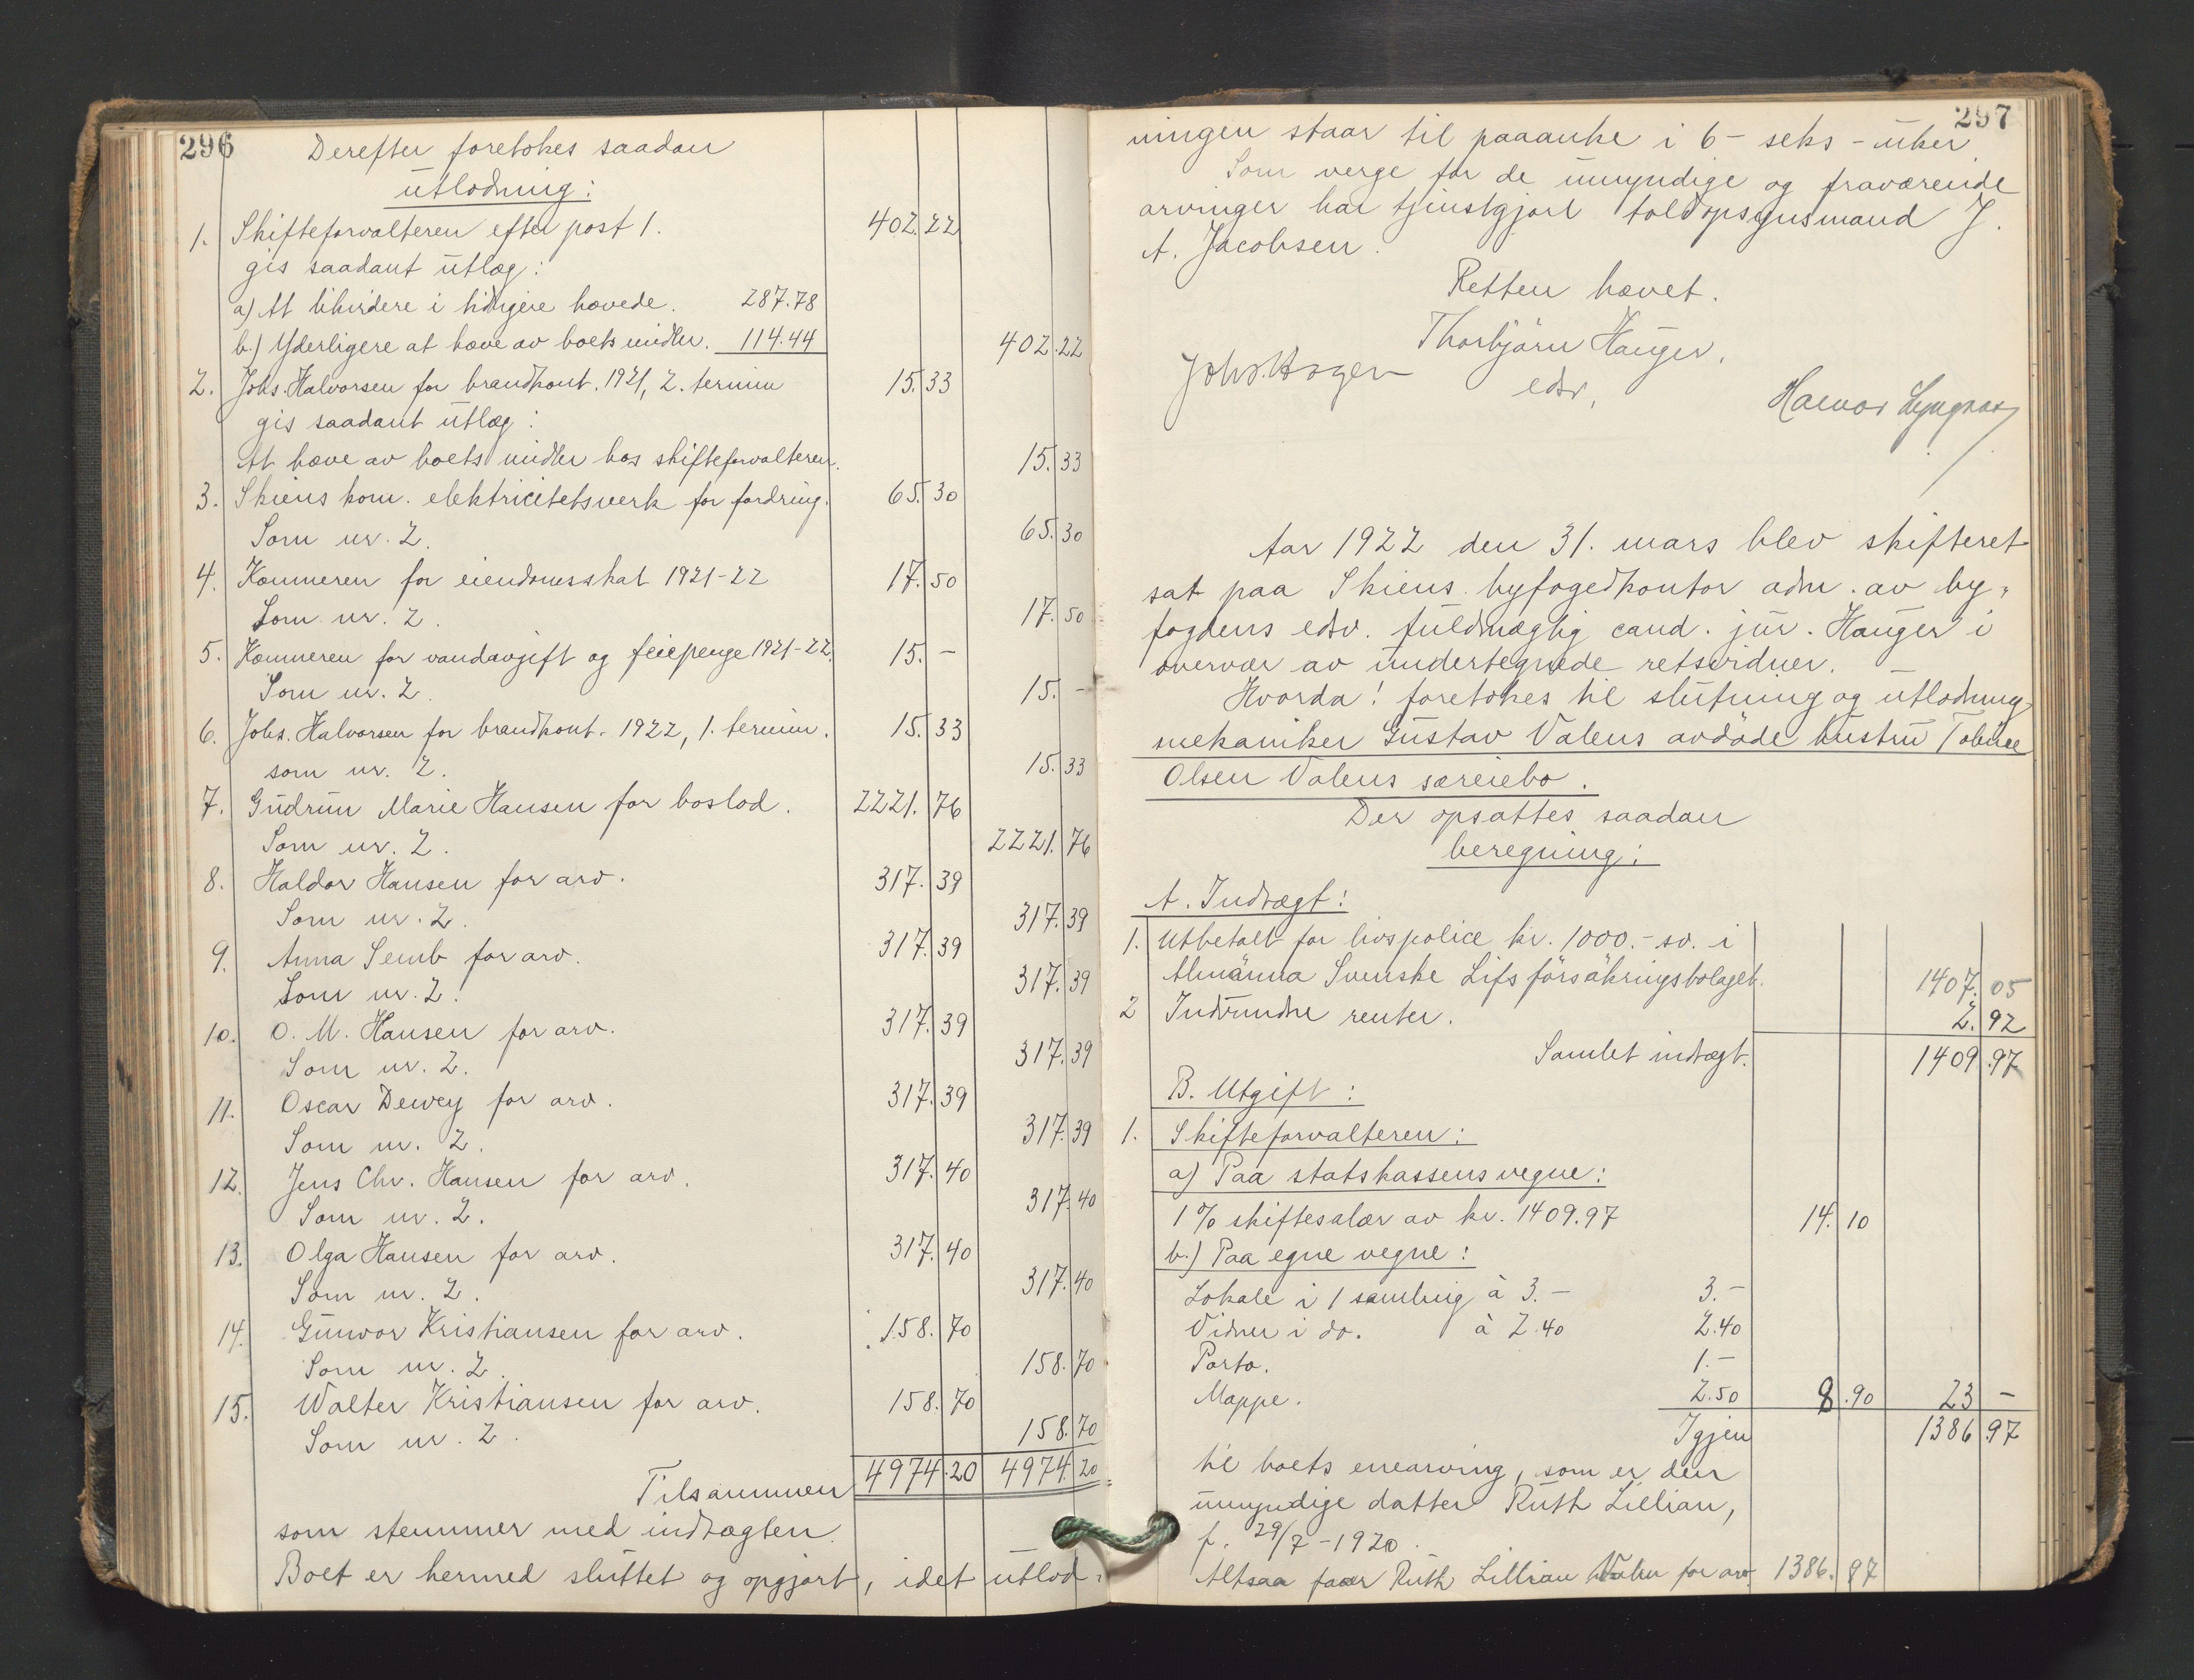 296
Derefter foretokes saadan
utlodning:
1. Skifteforvalteren efter post 1. 402.22
gis saadant utlæg:
a) At likvidere i tidligere hævede. 287.78
b.) Yderligere at hæve av boets midler. 114.44 402.22
2. Johs. Halvorsen for brandkont. 1921, 2. termin 15.33
gis saadant utlæg:
At hæve av boets midler hos skifteforvalteren. 15.33
3. Skiens kom. elektricitetsverk for fordring. 65.30
Som nr. 2. 65.30
4. Kæmneren for eiendomsskat 1921-22 17.50
Som nr. 2. 17.50
5. Kæmneren for vandavgift og feiepenge 1921-22. 15.-
Som nr. 2. 15.-
6. Johs. Halvorsen for brandkont. 1922, 1. termin. 15.33
som nr. 2. 15.33
7. Gudrun Marie Hansen for boslod. 2221.76
Som nr. 2. 2221.76
8. Haldor Hansen for arv. 317.39
Som nr. 2. 317.39
9. Anna Semb for arv. 317.39
Som nr. 2. 317.39
10. O. M. Hansen for arv. 317.39
Som nr. 2. 317.39
11. Oscar Dewey for arv. 317.39
Som nr. 2. 317.39
12. Jens Chr. Hansen for arv. 317.40
Som nr. 2. 317.40
13. Olga Hansen for arv. 317.40
Som nr. 2. 317.40
14. Gunvor Kristiansen for arv. 158.70
Som nr. 2. 158.70
15. Walter Kristiansen for arv. 158.70
Som nr. 2. 158.70
Tilsammen 4974.20 4974.20
som stemmer med indtægten.
Boet er hermed sluttet og opgjort, idet utlod-
297
ningen staar til paaanke i 6 - seks - uker.
Som verge for de umyndige og fraværende
arvinger har tjenstgjort toldopsynsmand J.
A. Jacobsen.
Retten hævet.
Thorbjørn Hauger.
edsv.
Johs. Hagen
Halvor
Aar 1922 den 31. mars blev skifteret
sat paa Skiens byfogedkontor adm. av by-
fogdens edsv. fuldmægtig cand. jur. Hauger i
overvær av undertegnede retsvidner.
Hvorda! foretokes til slutning og utlodning
mekaniker Gustav Valens avdøde hustru Tobine
Olsen Valens særeiebo.
Der opsattes saadan
beregning:
A. Indtægt:
1. Utbetalt for livspolice kr. 1000.- sv. i
Almänna Svenske Lifsförsäkringsbolaget. 1407.05
2 Indvundne renter. 2.92
Samlet indtægt. 1409.97
B. Utgift:
1. Skifteforvalteren:
a) Paa statskassens vegne:
1 % skiftesalær av kr. 1409.97 14.10
b.) Paa egne vegne:
Lokale i 1 samling à 3.- 3.-
Vidner i do. à 2.40 2.40
Porto. 1.-
Mappe. 2.50 8.90 23 -
Igjen 1386.97
til boets enearving, som er den
umyndige datter Ruth Lillian,
f. 29/7-1920.
Altsaa faar Ruth Lillian Valen for arv. 1386.97